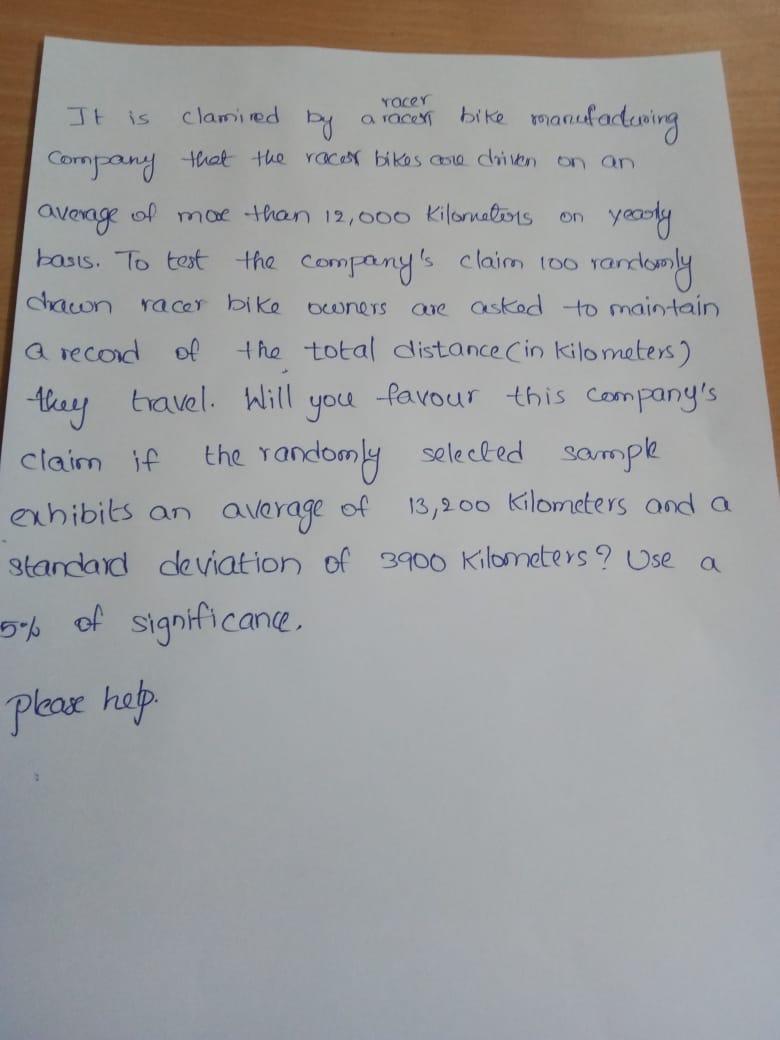 racer
It is clamired by a racers bike manufacturing
Company that the racer bikes are driven on an
average of more than 12,000 Kilometers on yearly
basis. To test the company's claim 100 randomly
drawn racer bike owners are asked to maintain
a record of the total distance (in kilometers)
they travel. Will you favour this company's
claim if the randomly selected sample
exhibits an average of 13,200 Kilometers and a
standard deviation of 3900 Kilometers? Use a
5% of significance.
please help.